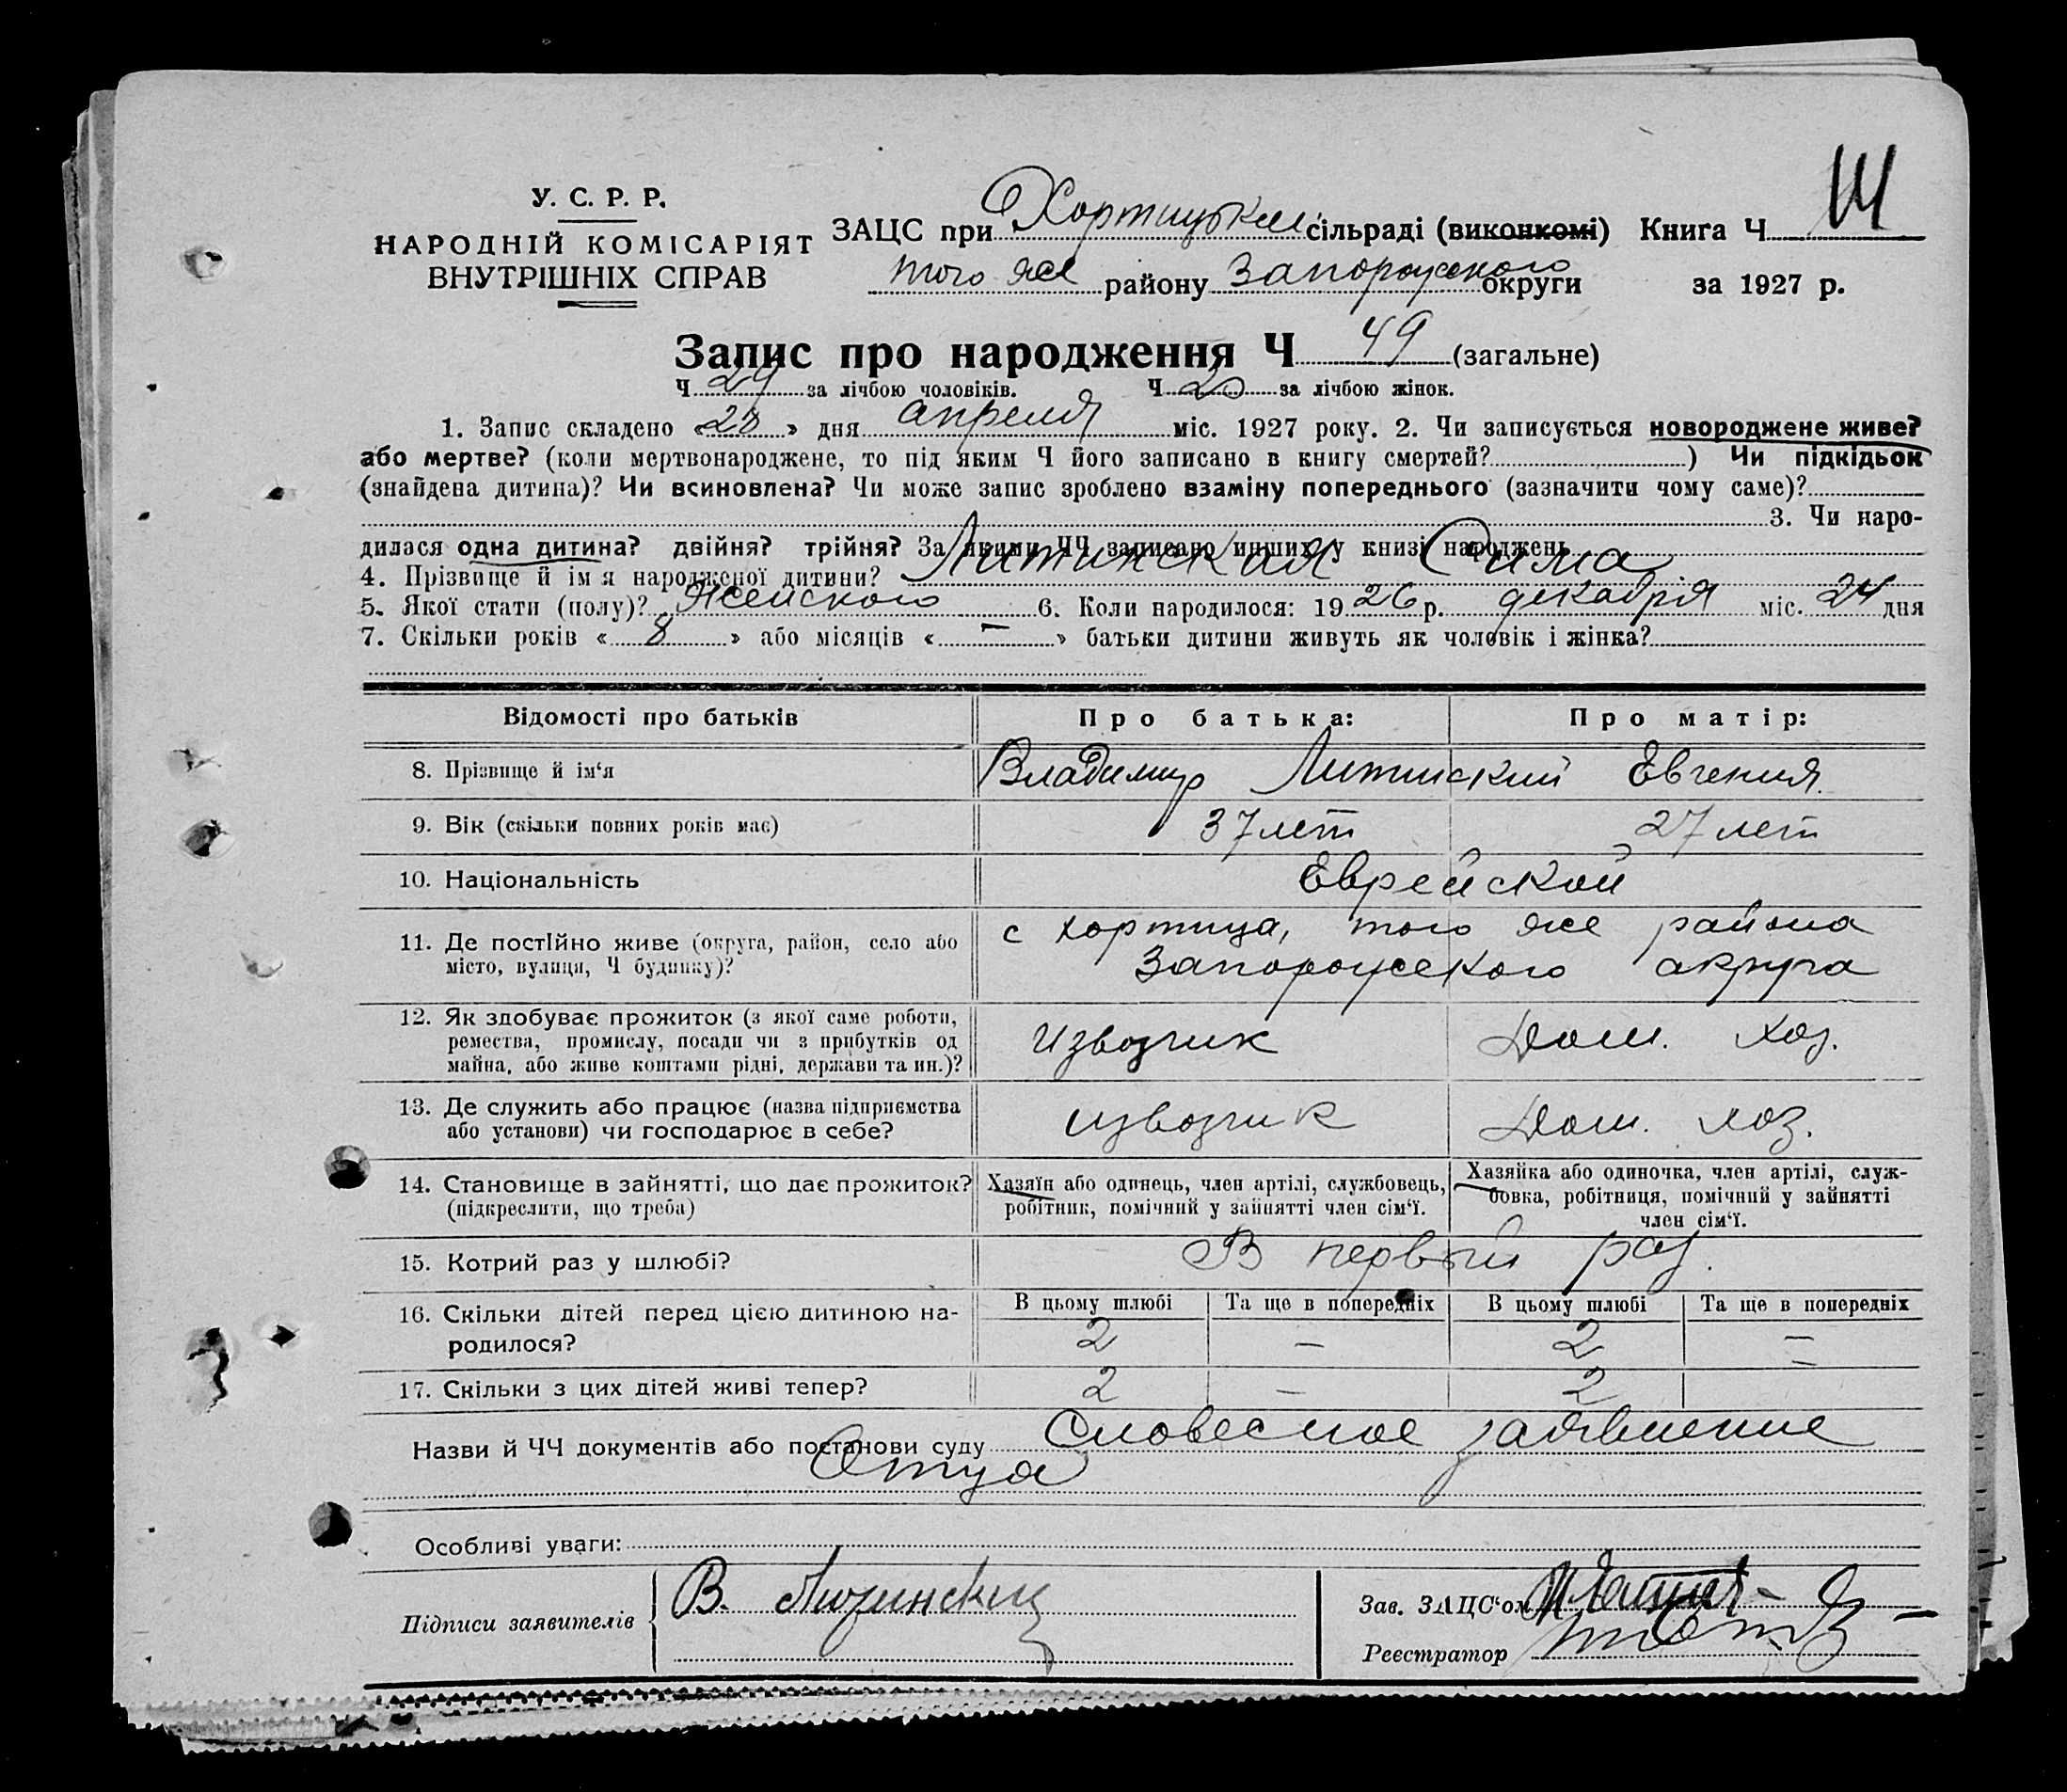 У. С. Р. Р.
НАРОДНІЙ КОМІСАРІЯТ
ВНУТРІШНІХ СПРАВ
ЗАЦС при Хортицькій сільраді (виконкомі) Книга Ч
того же району Запорожского округи за 1927 р.
Запис про народження Ч 49 (загальне)
Ч 29 за лічбою чоловіків. Ч 20 за лічбою жінок.
1. Запис складено « 28 » дня апреля міс. 1927 року. 2. Чи записується новороджене живе?
або мертве? (коли мертвонароджене, то під яким Ч його записано в книгу смертей? ) Чи підкідьок
(знайдена дитина)? Чи всиновлена? Чи може запис зроблено взаміну попереднього (зазначити чому саме)?
3. Чи наро-
дилася одна дитина? двійня? трійня? За якими ЧЧ записано инших у книзі народжень
4. Прізвище й ім я народженої дитини? Литинская Сима
5. Якої стати (полу)? Женского 6. Коли народилося: 19 26 р. декабря міс. 24 дня
7. Скільки років « 8 » або місяців « — » батьки дитини живуть як чоловік і жінка?
Відомості про батьків Про батька: Про матір:
8. Прізвище й ім‘я Владимир Литинский Евгения
9. Вік (скільки повних років має) 37 лет 27 лет
10. Національність Еврейской
11. Де постійно живе (округа, район, село або місто, вулиця, Ч будинку)? с Хортица, того же района
Запорожского акруга
12. Як здобуває прожиток (з якої саме роботи,
ремества, промислу, посади чи з прибутків од
майна, або живе коштами рідні, держави та ин.)? Извозчик Дом. хоз.
13. Де служить або працює (назва підприємства
або установи) чи господарює в себе? извозчик Дом. хоз.
14. Становище в зайнятті, що дає прожиток?
(підкреслити, що треба)
Хазяїн або одинець, член артілі, службовець,
робітник, помічний у зайнятті член сім‘ї.
Хазяйка або одиночка, член артілі, служ-
бовка, робітниця, помічний у зайнятті
член сім‘ї.
15. Котрий раз у шлюбі? В первый раз.
16. Скільки дітей перед цією дитиною на-
родилося?
В цьому шлюбі Та ще в попередніх В цьому шлюбі Та ще в попередніх
2 — 2 —
17. Скільки з цих дітей живі тепер? 2 — 2 —
Назви й ЧЧ документів або постанови суду Словесное заявление
Отца
Особливі уваги:
Підписи заявителів В. Литинский
Зав. ЗАЦС‘ом
Реєстратор